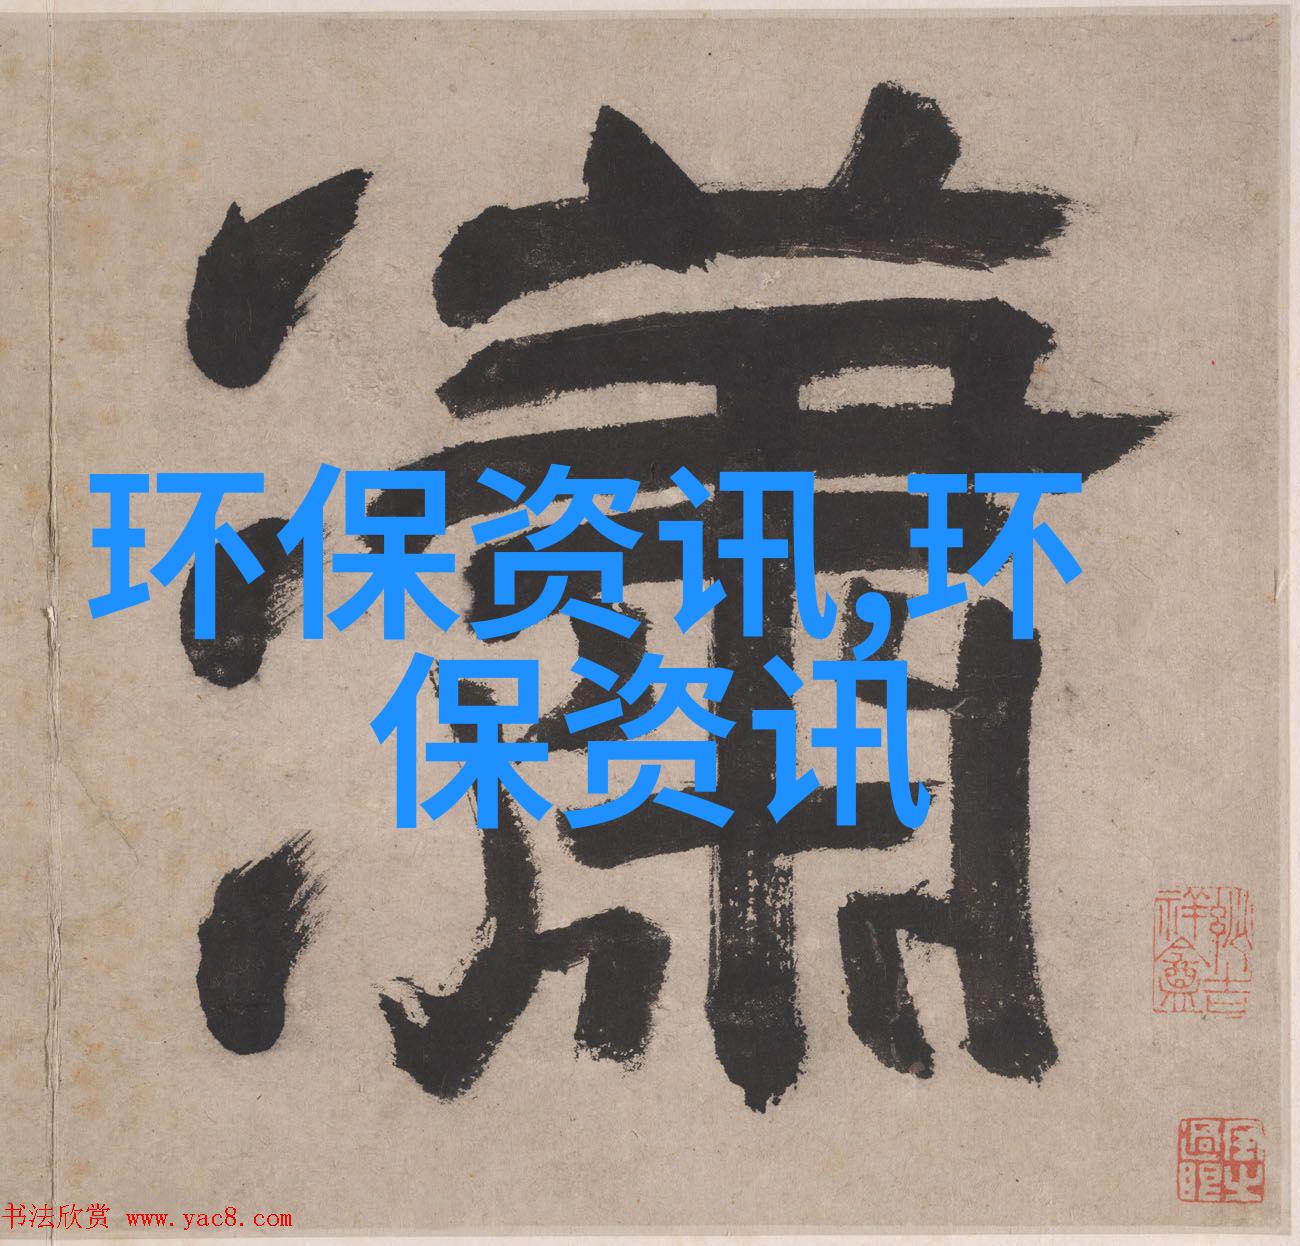 瀟
环保资讯,环
保资讯
书法欣赏 www.yac8.com